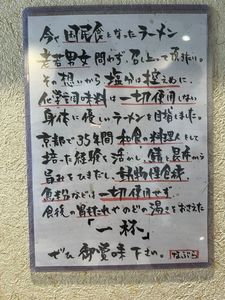 今や国民食となったラーメン
老若男女問わず、召し上って頂きたい。
その想いから塩分は控えめに、
化学調味料は一切使用しない
身体に優しいラーメンを目指しました。
京都で35年間和食の料理人として
培った経験を活かし、鯖と昆布から
旨みをひきだし、動物性食感、
魚粉などは一切使用せず
食後の胃もたれやのどの渇きをおさえた
「一杯」
ぜひ御賞味下さい。